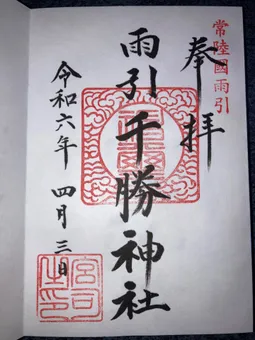 常陸國雨引
奉拝
雨引千勝神社
令和六年 四月三日
宮司之印